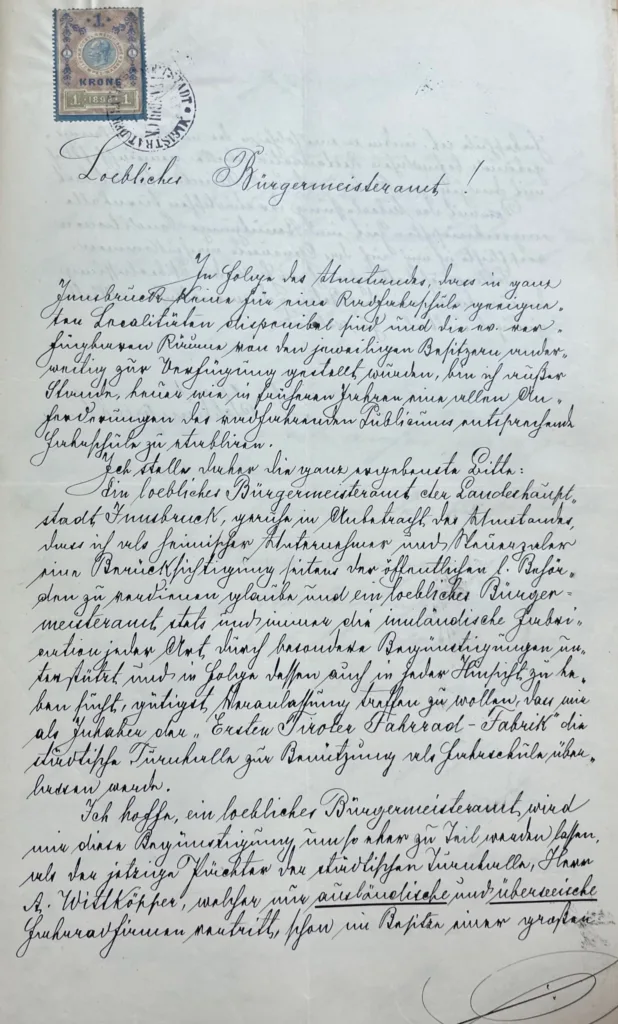 1.
KRONE
1. 1898 1.
Loebliches Bürgermeisteramt!
In Folge des Umstandes, dass in ganz
Innsbruck keine für eine Radfahrschule geeigne-
ten Localitäten disponibel sind und die ev. ver-
fügbaren Räume von den jeweiligen Besitzern ander-
weitig zur Verfügung gestellt wurden, bin ich außer
Stande, heuer wie in früheren Jahren eine allen An-
forderungen des radfahrenden Publicums entsprechende
Fahrschule zu etabliren.
Ich stelle daher die ganz ergebenste Bitte:
Ein loebliches Bürgermeisteramt der Landeshaupt-
stadt Innsbruck, geruhe in Anbetracht des Umstandes,
dass ich als heimischer Unternehmer und Steuerzaler
eine Berücksichtigung seitens der öffentlichen l. Behör-
den zu verdienen glaube und ein loebliches Bürger-
meisteramt stets und immer die inländische Fabri-
cation jeder Art, durch besondere Begünstigungen un-
terstützt und in Folge dessen auch in jeder Hinsicht zu he-
ben sucht, gütigst Veranlassung treffen zu wollen, dass mir
als Inhaber der „Ersten Tiroler Fahrrad-Fabrik" die
städtische Turnhalle zur Benützung als Fahrschule über-
lassen werde.
Ich hoffe, ein loebliches Bürgermeisteramt wird
mir diese Begünstigung umso eher zu Teil werden lassen,
als der jetzige Pächter der städtischen Turnhalle, Herr
A. Wittköpper, welcher nur ausländische und überseeische
Fahrradfirmen vertritt, schon im Besitze einer großen